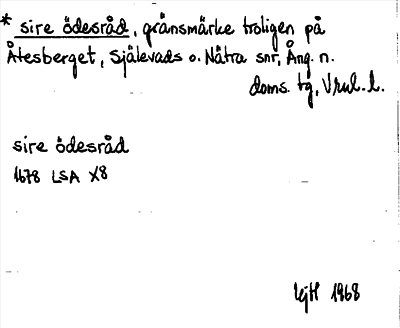 * sire ödesråd, gränsmärke troligen på
Åtesberget, Själevads o. Nätra snr, Ång. n.
doms. tg,
sire ödesråd
1678 LSA X8
1968